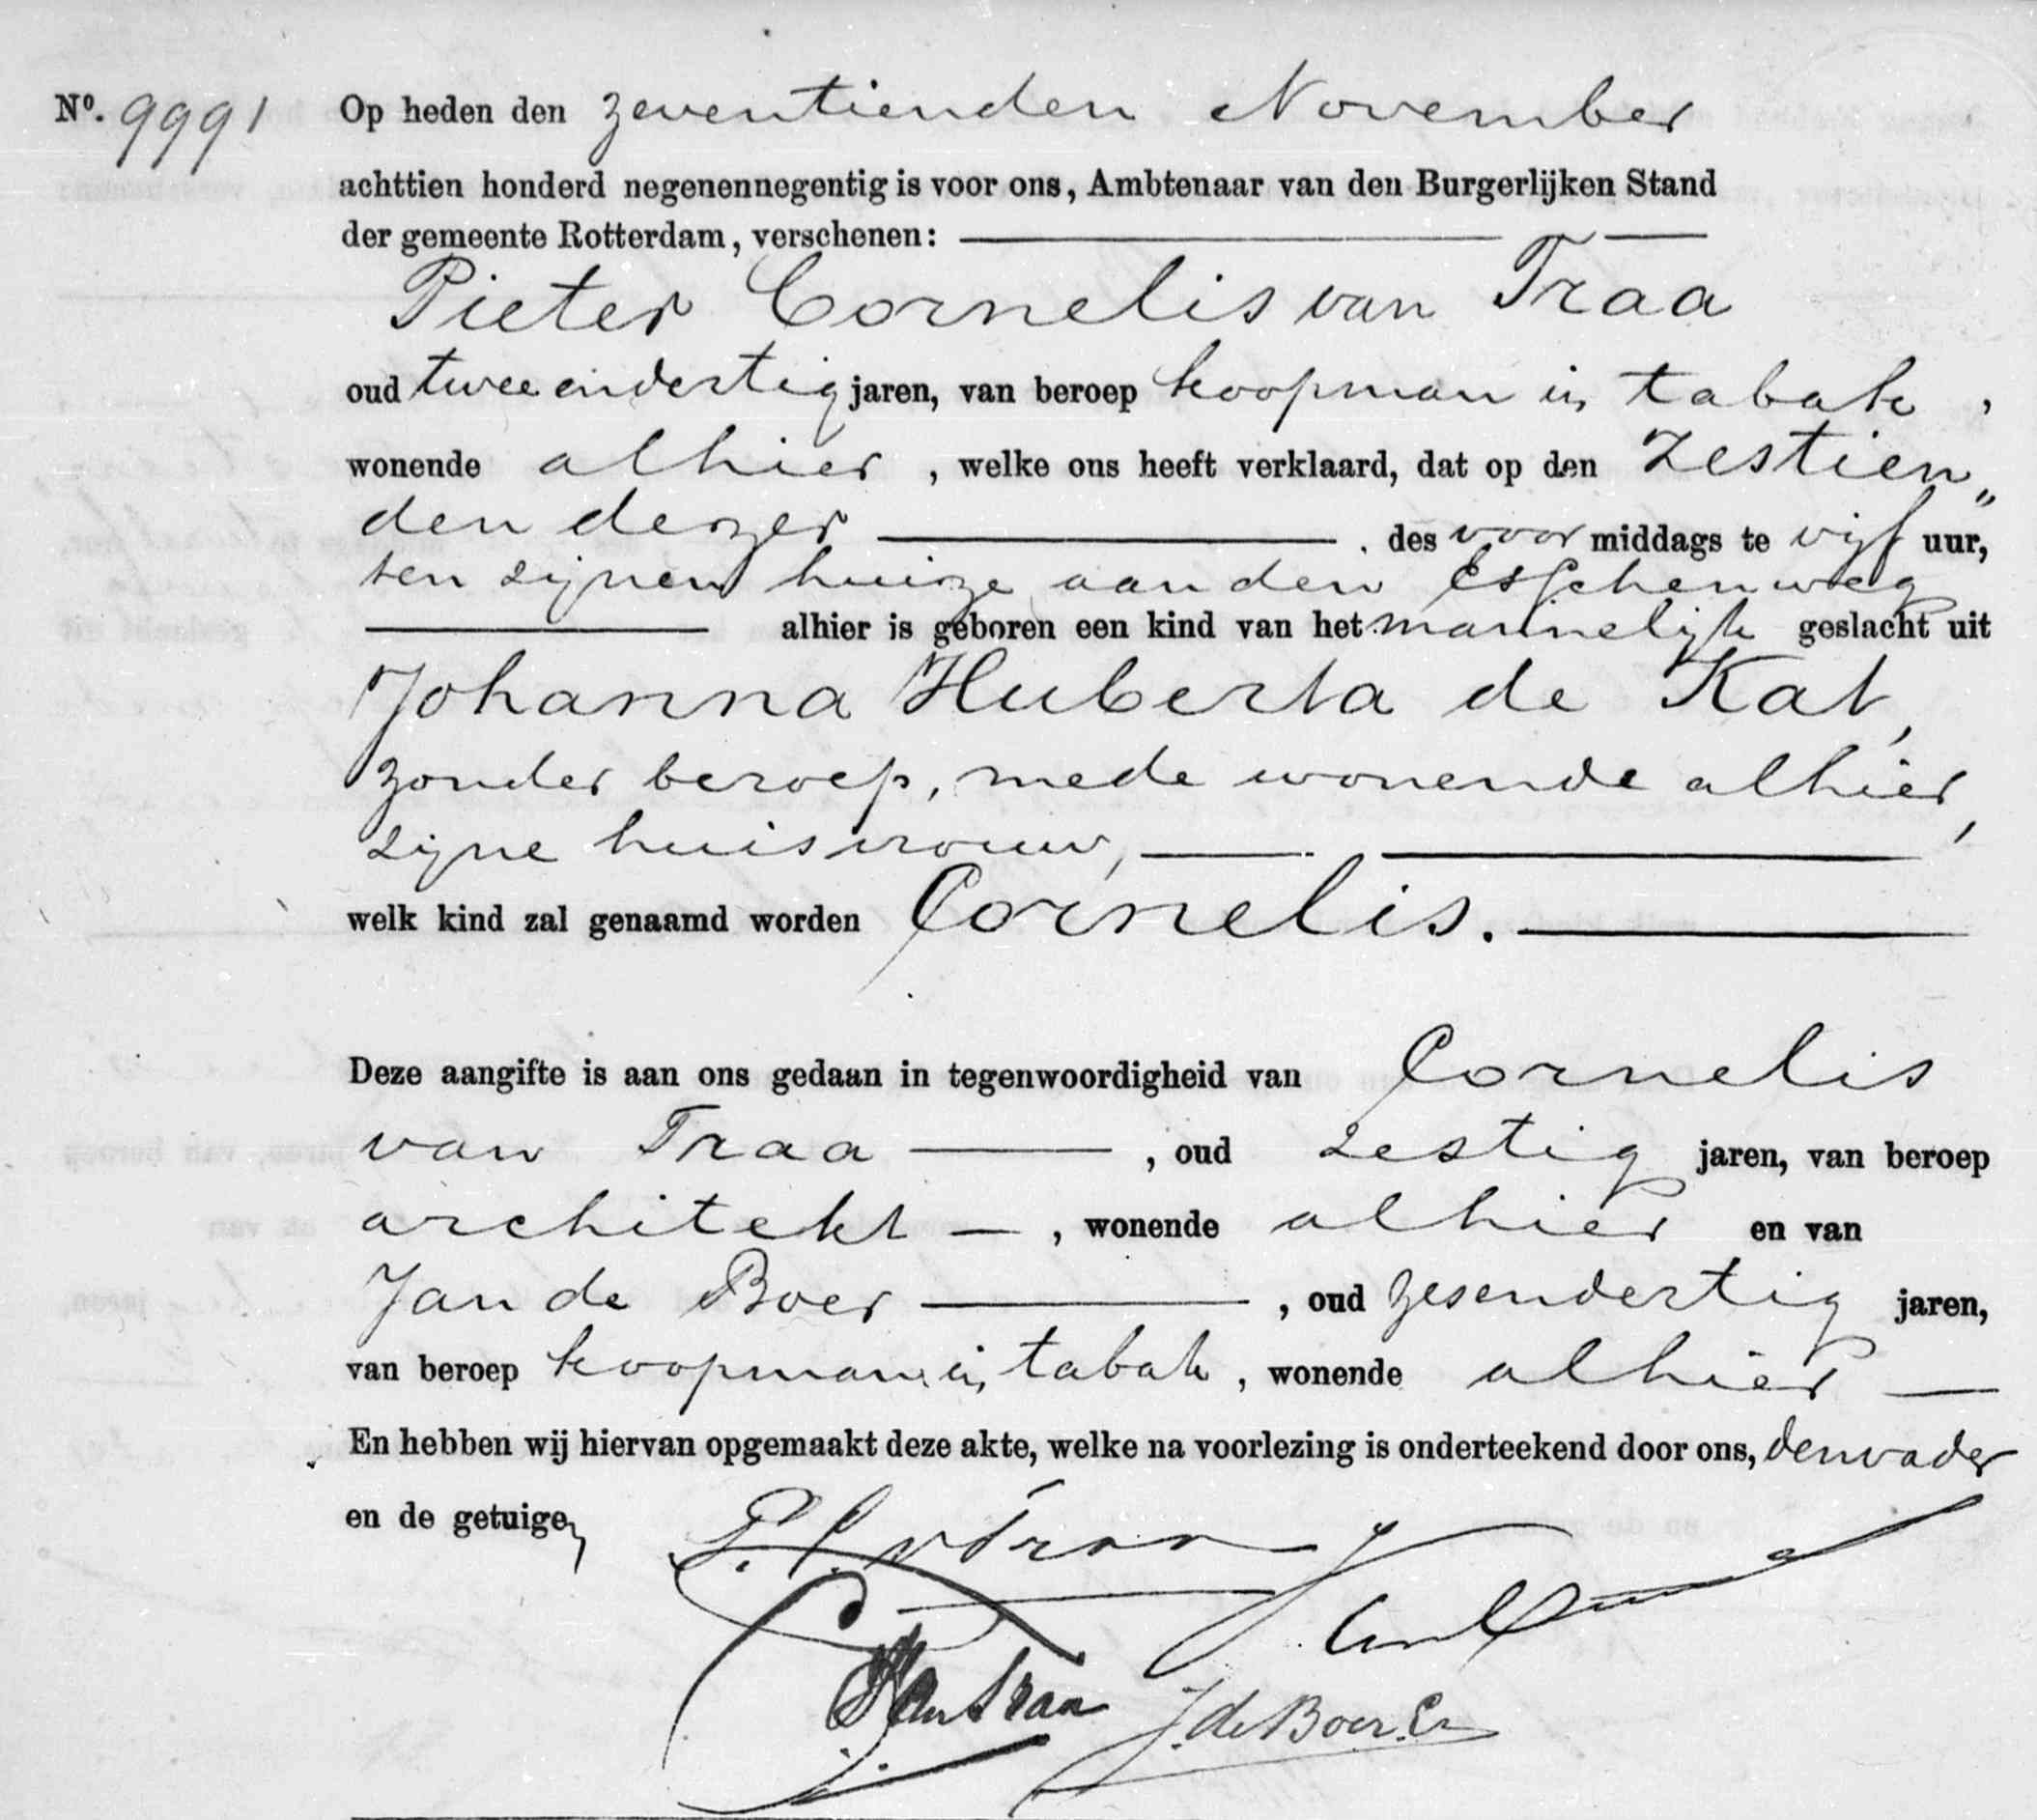 Nº. 9991 Op heden den zeventienden November
achttien honderd negenennegentig is voor ons, Ambtenaar van den Burgerlijken Stand
der gemeente Rotterdam, verschenen:
Pieter Cornelis van Traa
oud twee endertig jaren, van beroep koopman in tabak,
wonende alhier, welke ons heeft verklaard, dat op den zestien„
den dezer des voor middags te vijf uur,
ten zijnen huize aan den Esschenweg
alhier is geboren een kind van het mannelijk geslacht uit
Johanna Huberta de Kat,
zonder beroep, mede wonende alhier,
zijne huisvrouw,
welk kind zal genaamd worden Cornelis.
Deze aangifte is aan ons gedaan in tegenwoordigheid van Cornelis
van Traa, oud zestig jaren, van beroep
architekt, wonende alhier en van
Jan de Boer, oud zesendertig jaren,
van beroep koopman in tabak, wonende alhier
En hebben wij hiervan opgemaakt deze akte, welke na voorlezing is onderteekend door ons, den vader
en de getuigen
P. C. v Traa
C. van Traa J. de Boer